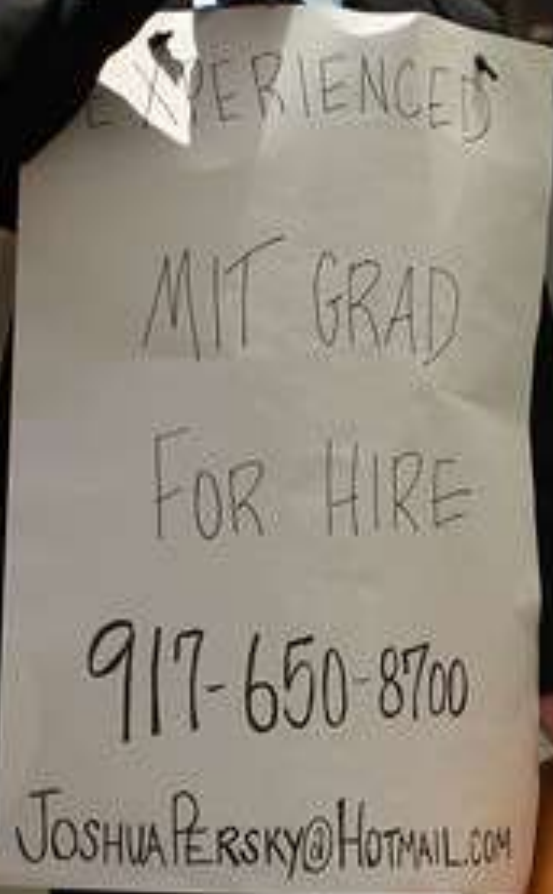 EXPERIENCED
MIT GRAD
FOR HIRE
917-650-8700
JOSHUAPERSKY@HOTMAIL.COM